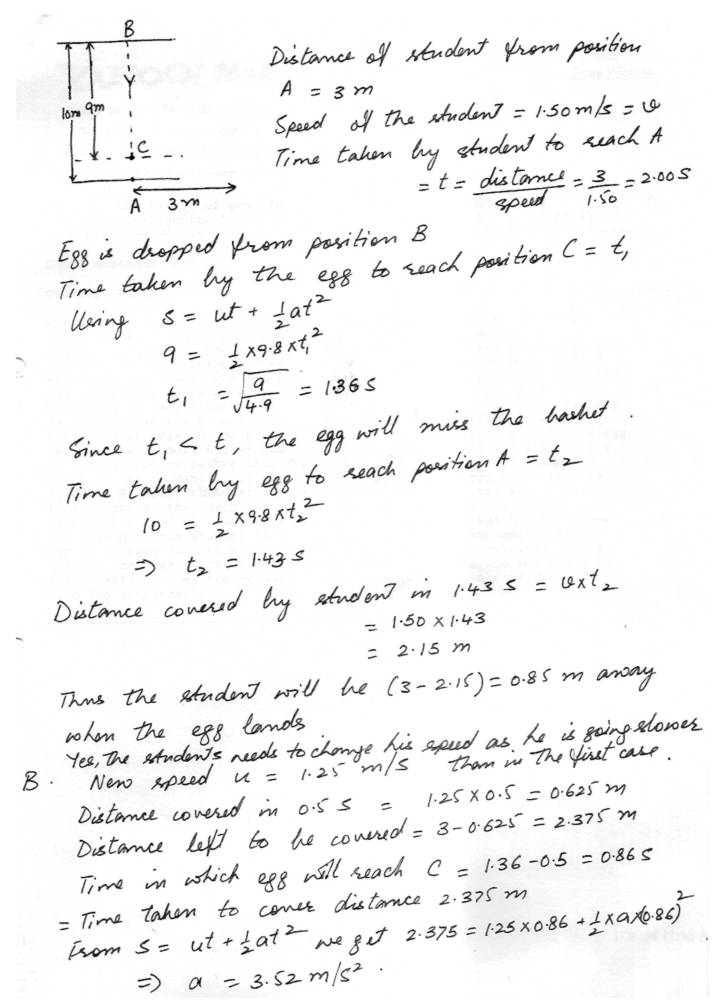 B
10m 9m
C
A 3m
Distance of student from position
A = 3 m
Speed of the student = 1.50 m/s = v
Time taken by student to reach A
= t = distance/speed = 3/1.50 = 2.00 S
Egg is dropped from position B
Time taken by the egg to reach position C = t₁
Using S = ut + ½at²
9 = ½ × 9.8 × t₁²
t₁ = √(9/4.9) = 1.36 S
Since t₁ < t, the egg will miss the basket.
Time taken by egg to reach position A = t₂
10 = ½ × 9.8 × t₂²
⇒ t₂ = 1.43 S
Distance covered by student in 1.43 S = v × t₂
= 1.50 × 1.43
= 2.15 m
Thus the student will be (3 - 2.15) = 0.85 m away
when the egg lands
Yes, The student's needs to change his speed as he is going slower
than in the first case.
B. New speed u = 1.25 m/s
Distance covered in 0.5 S = 1.25 × 0.5 = 0.625 m
Distance left to be covered = 3 - 0.625 = 2.375 m
Time in which egg will reach C = 1.36 - 0.5 = 0.86 S
= Time taken to cover distance 2.375 m
From S = ut + ½at² we get 2.375 = 1.25 × 0.86 + ½ × a × (0.86)²
⇒ a = 3.52 m/s².